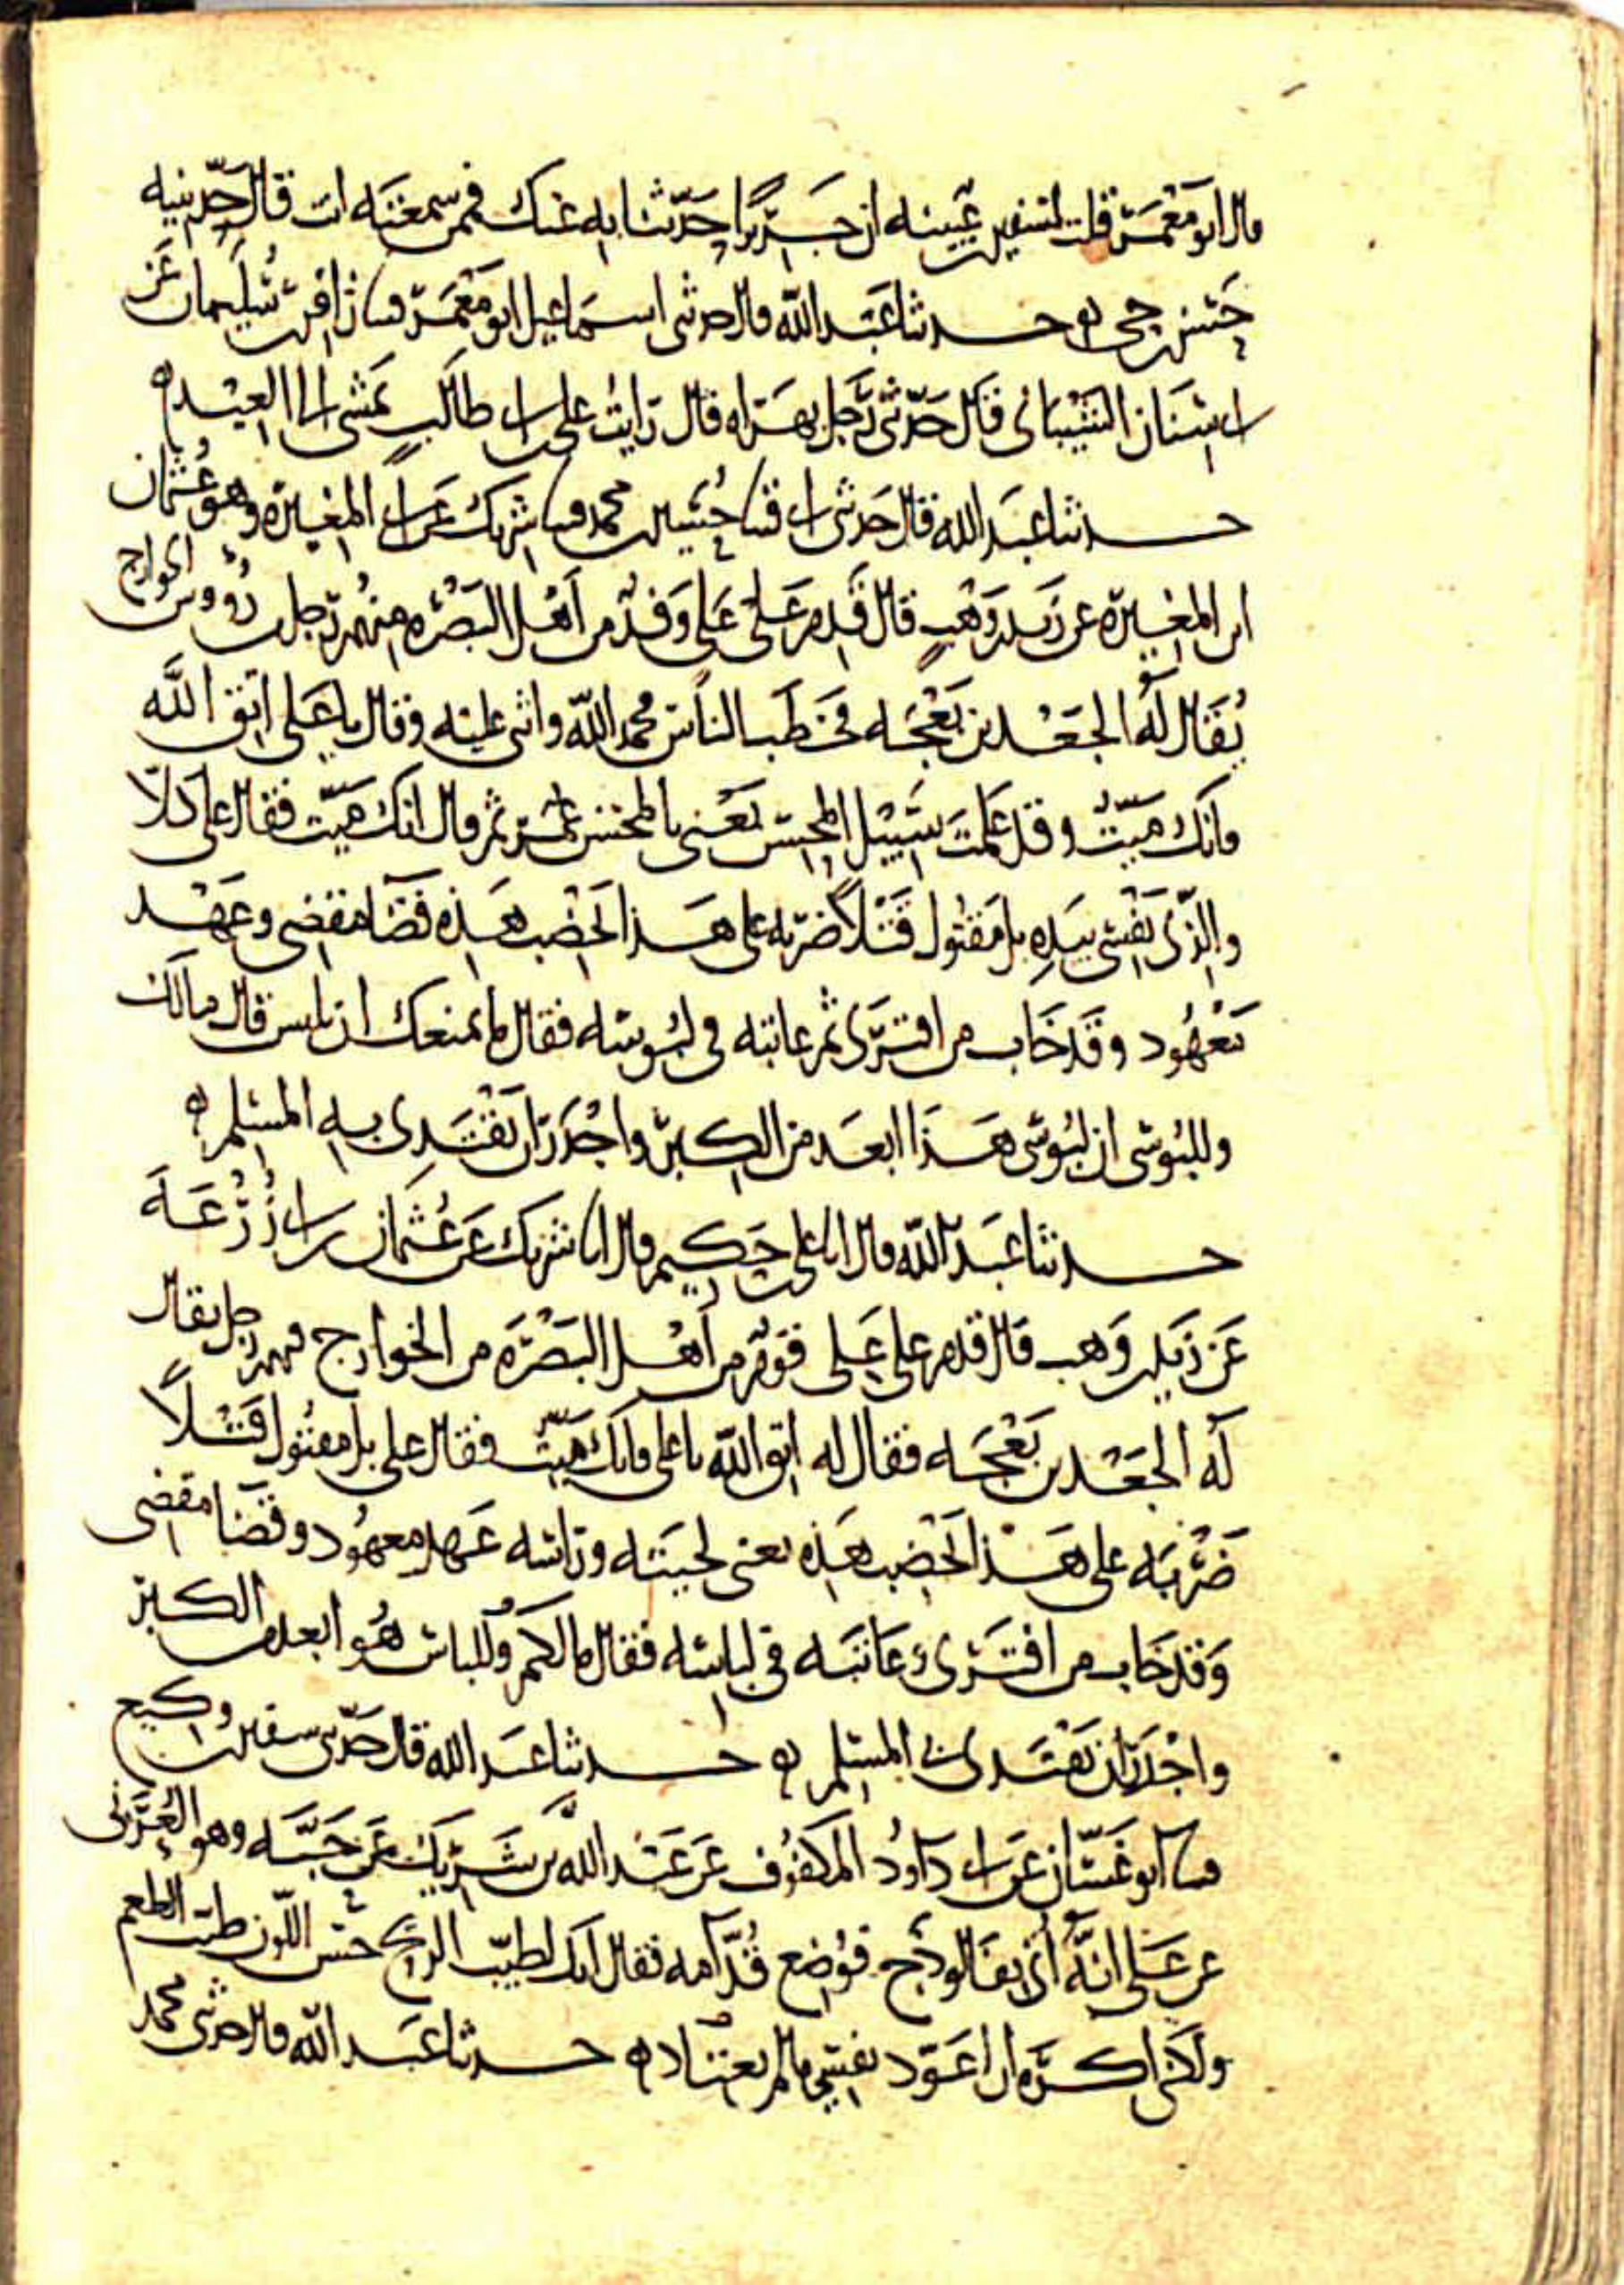 قال ابو معمر قلت لسفين بن عيينه ان جريرا حدثنا به عنك فممن سمعته انت قال حدثنيه
حسن بن حي ه حدثنا عبد الله قال حدثني اسماعيل ابو معمر قثنا زافر بن سليمان عن
ابي سنان الشيباني قال حدثني رجل بهراه قال رايت علي بن ابي طالب يمشي الى العيد ه
حدثنا عبد الله قال حدثني ابي قثنا حسين بن محمد قثنا شريك عن ابي المغيرة وهو عثمان
ابن المغيرة عن زيد بن وهب قال قدم على علي وفد من اهل البصرة منهم رجل من رؤوس الخوارج
يقال له الجعد بن بعجه فخطب الناس فحمد الله واثنى عليه وقال يا علي اتق الله
فانك ميت وقد علمت سبيل المحسن يعني بالمحسن عمر ثم قال انك ميت فقال علي كلا
والذي نفسي بيده بل مقتول قتلا ضربه على هذا تخضب هذه قضا مقضي وعهد
معهود وقد خاب من افترى ثم عاتبه في لبوسه فقال ما يمنعك ان تلبس قال مالك
وللبوسي ان لبوسي هذا ابعد من الكبر واجدر ان يقتدي به المسلم ه
حدثنا عبد الله قال انا علي بن حكيم قال انا شريك عن عثمان بن ابي زرعه
عن زيد بن وهب قال قدم على علي قوم من اهل البصرة من الخوارج فيهم رجل يقال
له الجعد بن بعجه فقال له اتق الله يا علي فانك ميت فقال علي بل مقتول قتلا
ضربه على هذا تخضب هذه يعني لحيته وراسه عهد معهود وقضا مقضي
وقد خاب من افترى وعاتبه في لباسه فقال مالكم وللباس هو ابعد من الكبر
واجدر ان يقتدي بي المسلم ه حدثنا عبد الله قال حدثني سفين بن وكيع
قثنا ابو غسان عن ابي داود المكفوف عن عبد الله بن شريك عن حبه وهو العرني
عن علي انه اتي بفالوذج فوضع قدامه فقال انك لطيب الريح حسن اللون طيب الطعم
ولكني اكره ان اعود نفسي ما لم تعتاد ه حدثنا عبد الله قال حدثني محمد